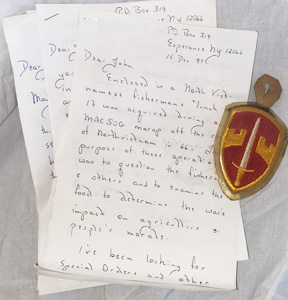 P.O. Box 319
NY 12066
Dear
Dear
you
Ma
P.O. Box 319
Esperance NY 12066
15 Dec 92
Dear John
Enclosed is a North Viet-
namese fishermans "lunch
It was acquired during a
MACSOG marop off the
of North vietnam in 66.
purpose of these operat
was to question the fisherm
& others and to examine the
food to determine the wars
impact on agriculture &
people's morale.
I've been looking for
Special Orders and other